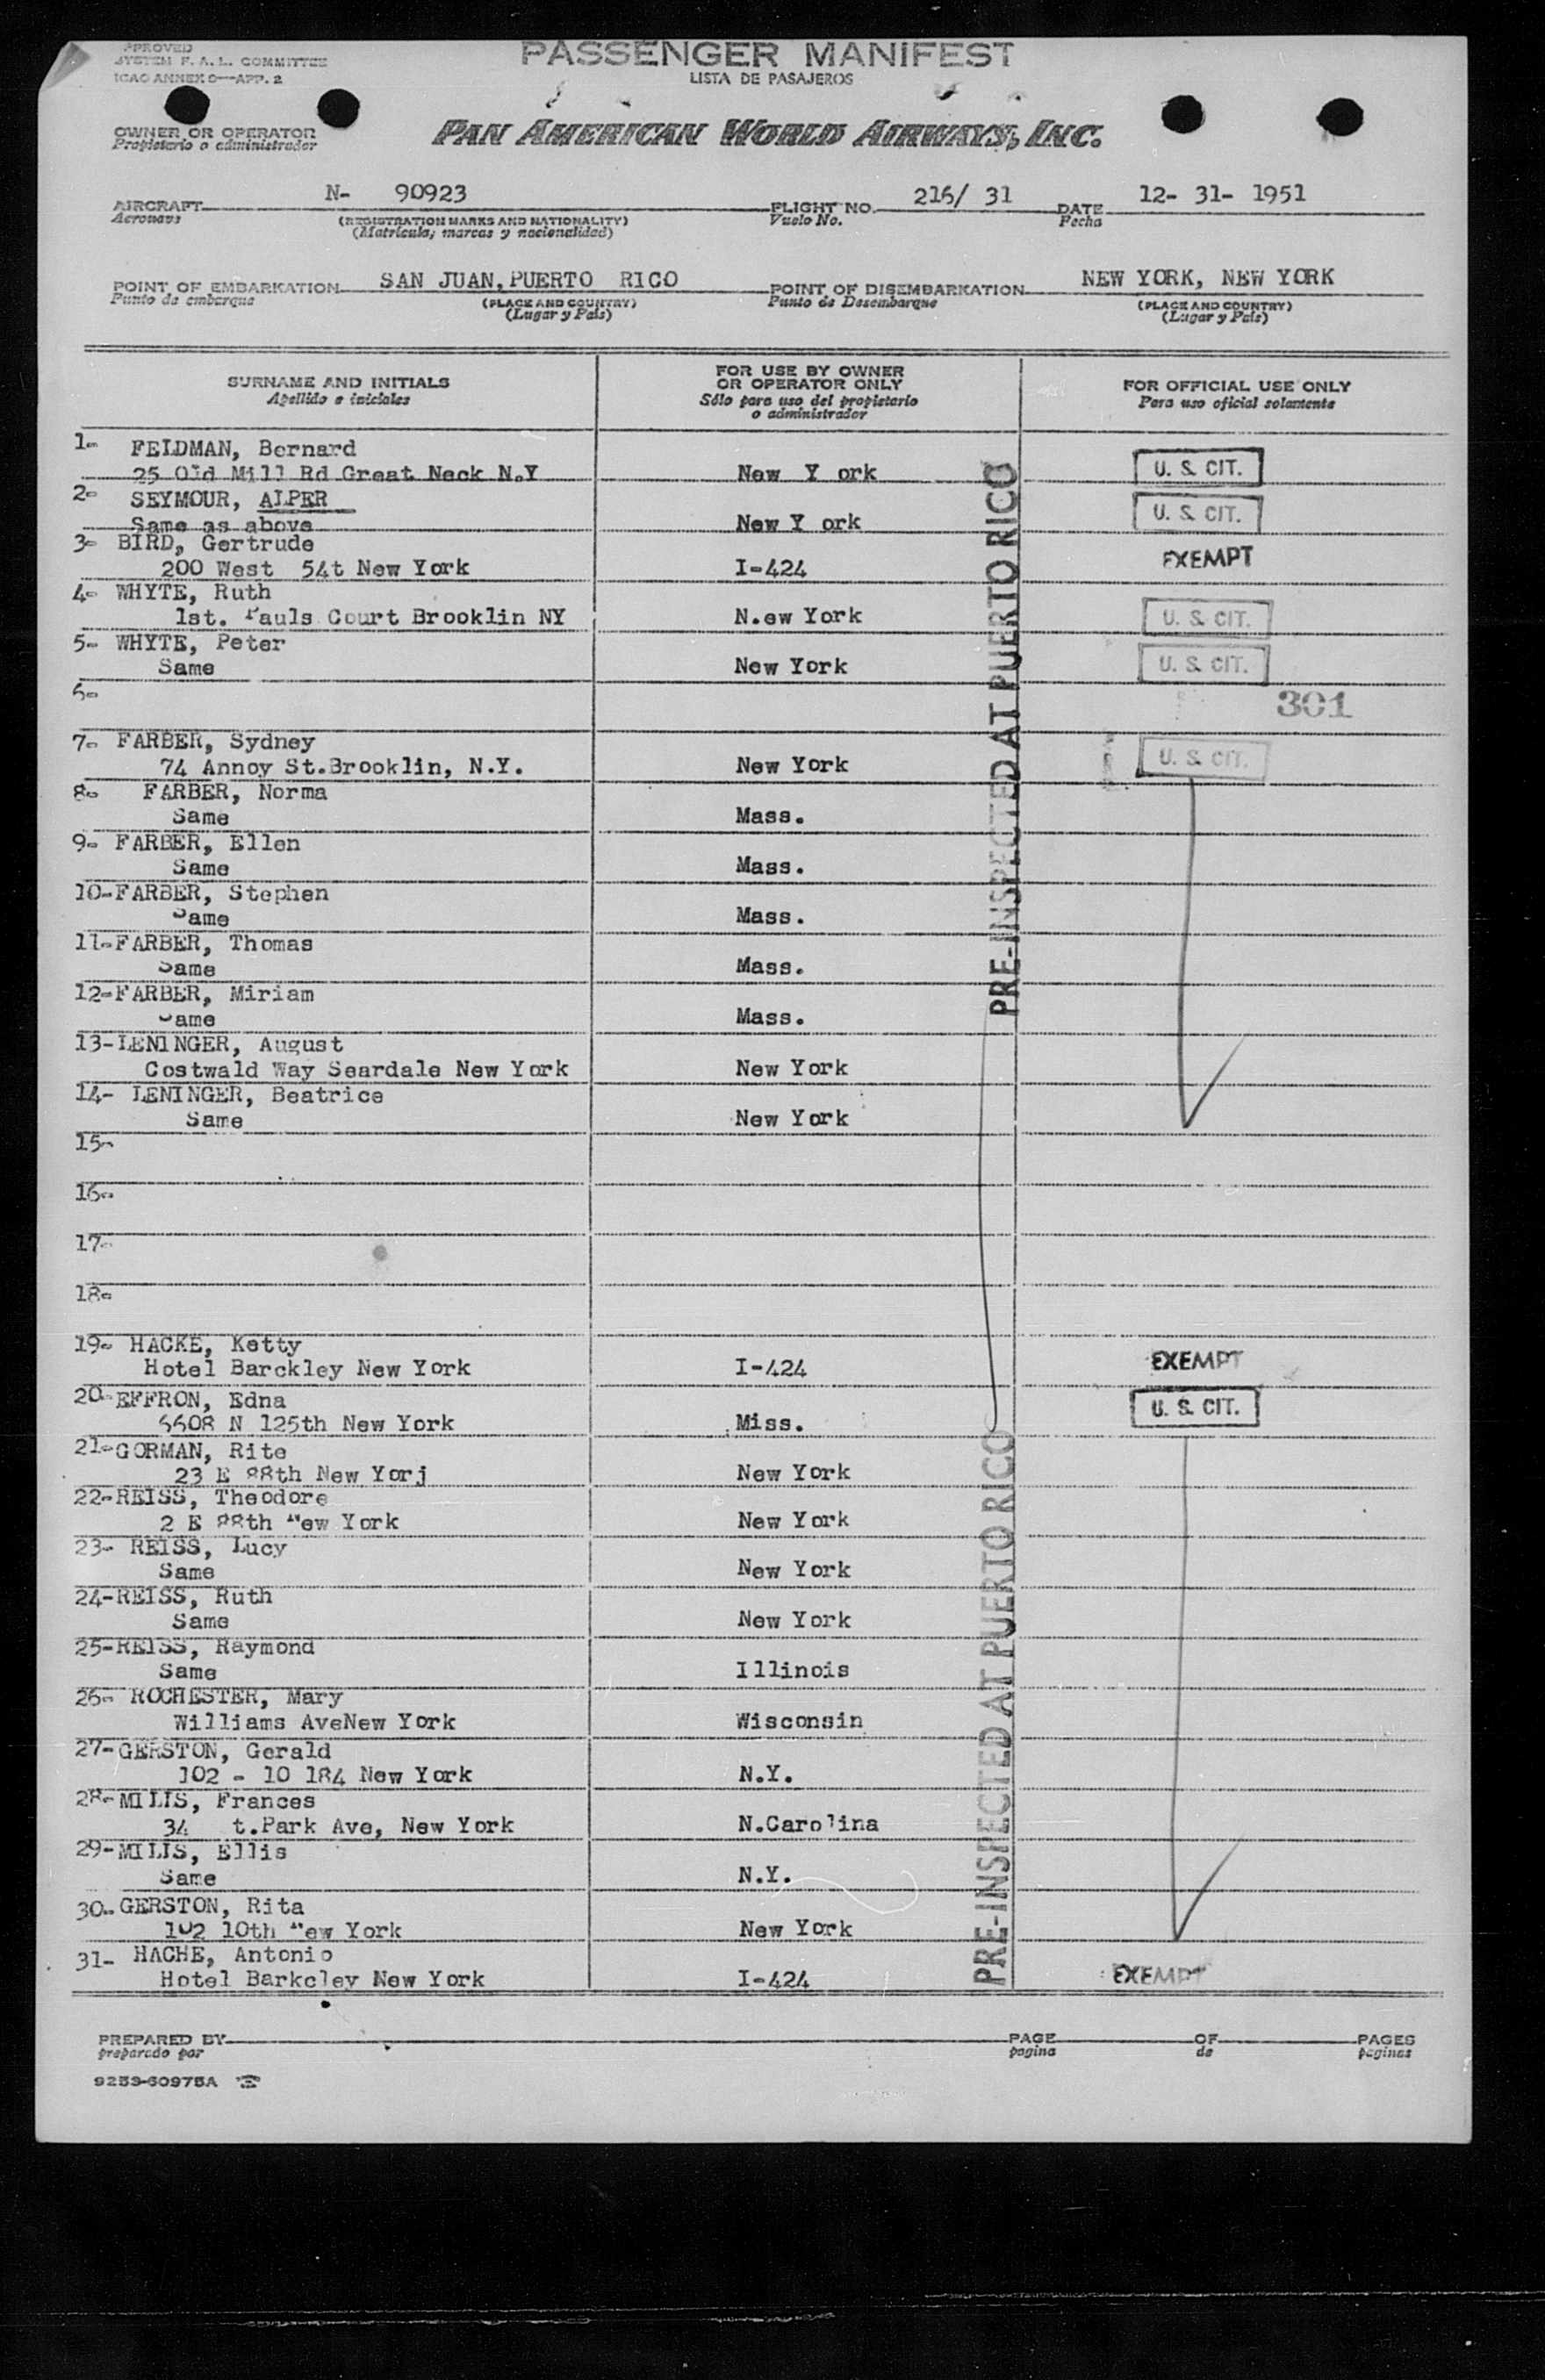 APPROVED
SYSTEM F. A. L. COMMITTEE
ICAO ANNEX 9—APP. 2
PASSENGER MANIFEST
LISTA DE PASAJEROS
OWNER OR OPERATOR
Propietario o administrador
PAN AMERICAN WORLD AIRWAYS, INC.
AIRCRAFT N- 90923 FLIGHT NO. 216/ 31 DATE 12- 31- 1951
Aeronave (REGISTRATION MARKS AND NATIONALITY) Vuelo No. Fecha
(Matrícula, marcas y nacionalidad)
POINT OF EMBARKATION SAN JUAN, PUERTO RICO POINT OF DISEMBARKATION NEW YORK, NEW YORK
Punto de embarque (PLACE AND COUNTRY) Punto de Desembarque (PLACE AND COUNTRY)
(Lugar y País) (Lugar y País)
SURNAME AND INITIALS FOR USE BY OWNER OR OPERATOR ONLY FOR OFFICIAL USE ONLY
Apellido e iniciales Sólo para uso del propietario o administrador Para uso oficial solamente
1- FELDMAN, Bernard
25 Old Mill Rd Great Neck N.Y New Y ork U. S. CIT.
2- SEYMOUR, ALPER
Same as above New Y ork U. S. CIT.
3- BIRD, Gertrude
200 West 54t New York I-424 EXEMPT
4- WHYTE, Ruth
1st. Pauls Court Brooklin NY N.ew York U. S. CIT.
5- WHYTE, Peter
Same New York U. S. CIT.
6- 301
7- FARBER, Sydney
74 Annoy St.Brooklin, N.Y. New York U. S. CIT.
8- FARBER, Norma
Same Mass.
9- FARBER, Ellen
Same Mass.
10-FARBER, Stephen
Same Mass.
11-FARBER, Thomas
Same Mass.
12-FARBER, Miriam
Same Mass.
13-LENINGER, August
Costwald Way Seardale New York New York
14- LENINGER, Beatrice
Same New York
15-
16-
17-
18-
PRE-INSPECTED AT PUERTO RICO
19- HACKE, Ketty
Hotel Barckley New York I-424 EXEMPT
20-EFFRON, Edna
6608 N 125th New York Miss. U. S. CIT.
21-GORMAN, Rite
23 E 88th New Yorj New York
22-REISS, Theodore
2 E 88th New York New York
23- REISS, Lucy
Same New York
24-REISS, Ruth
Same New York
25-REISS, Raymond
Same Illinois
26- ROCHESTER, Mary
Williams AveNew York Wisconsin
27-GERSTON, Gerald
102 - 10 184 New York N.Y.
28-MILIS, Frances
34 t.Park Ave, New York N.Carolina
29-MILIS, Ellis
Same N.Y.
30-GERSTON, Rita
102 10th New York New York
31- HACHE, Antonio
Hotel Barkcley New York I-424 EXEMPT
PRE-INSPECTED AT PUERTO RICO
PREPARED BY PAGE OF PAGES
preparado por pagina de páginas
9253-60975A